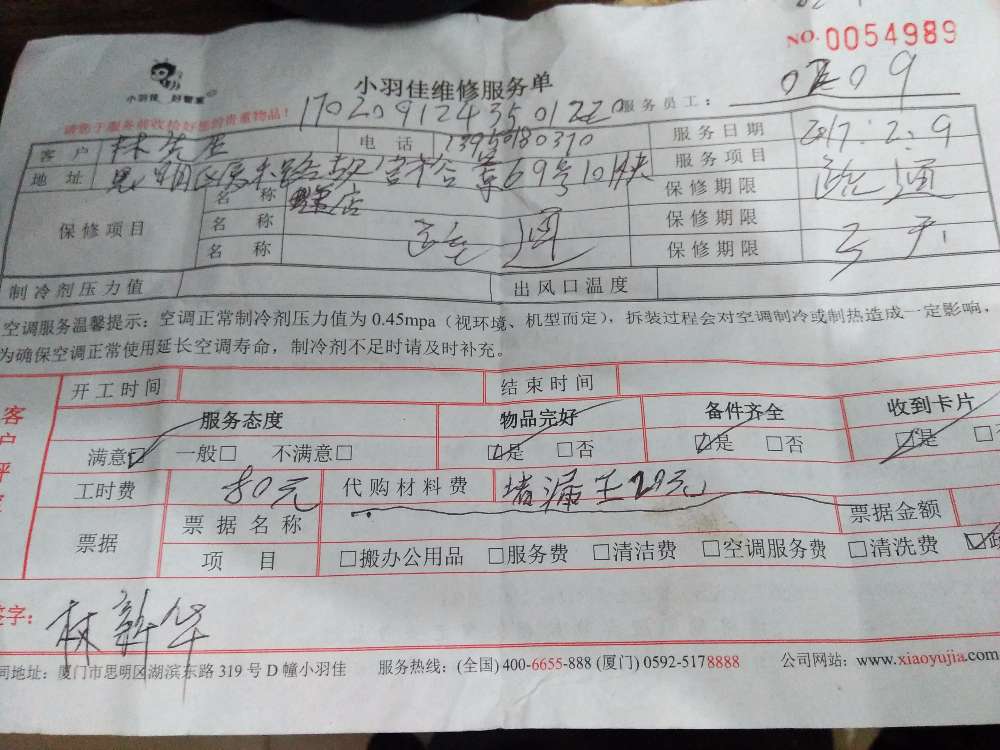 NO. 0054989
小羽佳 好管家
小羽佳维修服务单
请您于服务前收捡好您的贵重物品!
1702091243501220
服务员工: 0209
客户 林先生 电话 13950180370 服务日期 2017.2.9
地址 69号 服务项目 疏通
保修项目 名称 店 保修期限
名称 疏通 保修期限
名称 保修期限
制冷剂压力值 出风口温度
空调服务温馨提示:空调正常制冷剂压力值为 0.45mpa(视环境、机型而定),拆装过程会对空调制冷或制热造成一定影响,
为确保空调正常使用延长空调寿命,制冷剂不足时请及时补充。
开工时间 结束时间
客户评
服务态度 物品完好 备件齐全 收到卡片
满意☑ 一般□ 不满意□ ☑是 □否 ☑是 □否 ☑是 □
工时费 80元 代购材料费 堵漏王29元
票据 票据名称 票据金额
项目 □搬办公用品 □服务费 □清洁费 □空调服务费 □清洗费 ☑
签字: 林新华
司地址:厦门市思明区湖滨东路 319 号 D 幢小羽佳 服务热线:(全国) 400-6655-888 (厦门) 0592-5178888 公司网站:www.xiaoyujia.com